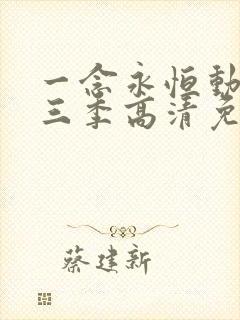 一念永恒動
三季高清免
蔡建新